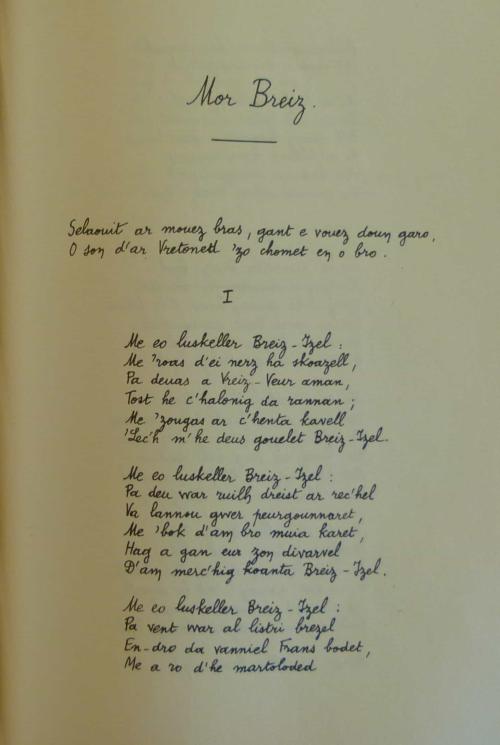 Mor Breiz.
Selaouit ar mouez bras, gant e vouez doun garo,
O son d'ar Vretoned 'zo chomet en o bro.
I
Me eo luskeller Breiz-Izel :
Me 'roas d'ei nerz ha skoazell,
Pa deuas a Vreiz-Veur aman,
Tost he c'halonig da rannan ;
Me 'zougas ar c'henta kavell
'Lec'h m'he deus gouelet Breiz-Izel.
Me eo luskeller Breiz-Izel :
Pa deu war ruilh dreist ar rec'hel
Va lannou gwer peurgounnaret,
Me 'bok d'am bro muia karet,
Hag a gan eur zon divarvel
D'am merc'hig koanta Breiz-Izel.
Me eo luskeller Breiz-Izel :
Pa vent war al listri brezel
En-dro da vanniel Frans bodet,
Me a ro d'he martoloded